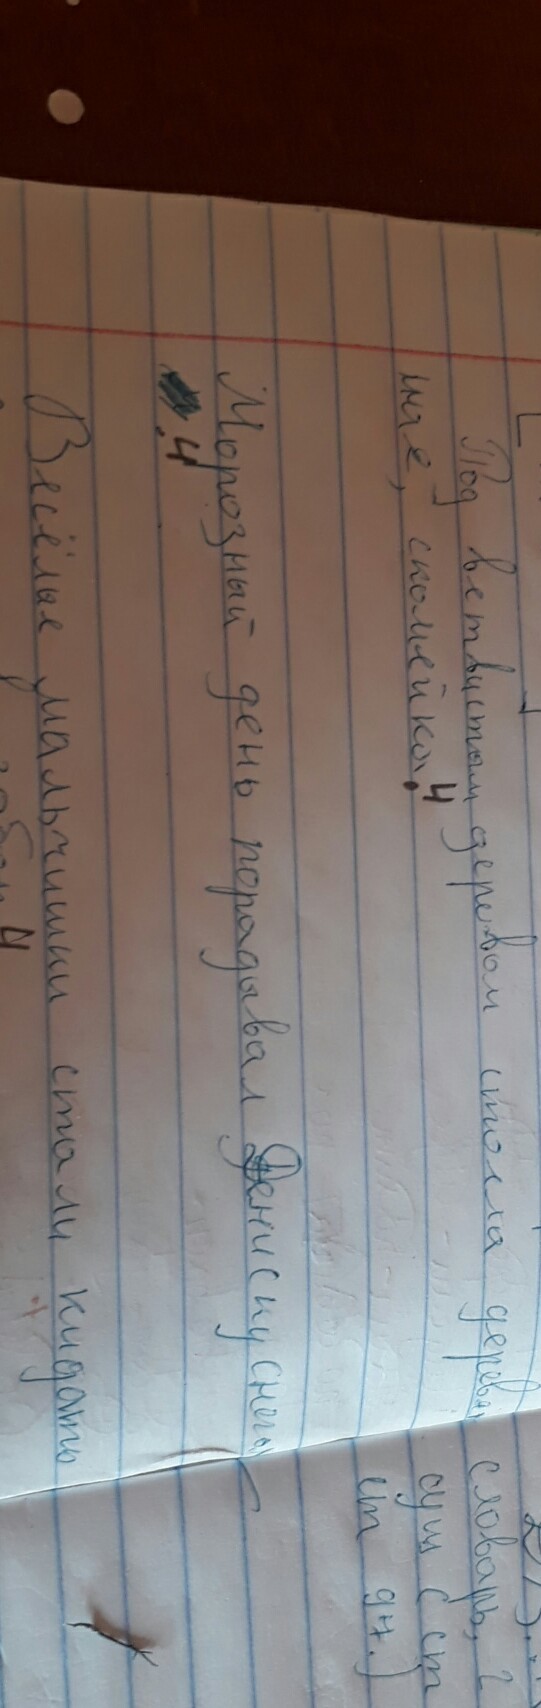 Под ветвистым деревом стояла деревян
ная, скамейка.4
Морозный день порадывал Дениску снегом
.4
Весёлые мальчишки стали кидать
словарь, 2